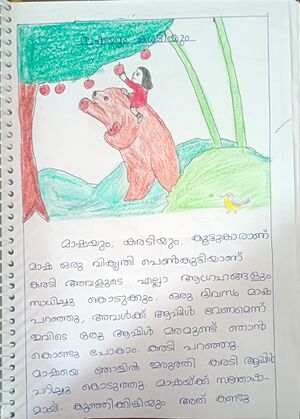 മാഷയും കരടിയും
മാഷയും, കരടിയും കൂട്ടുകാരാണ്
മാഷ ഒരു വികൃതി പെൺകുട്ടിയാണ്
കരടി അവളുടെ എല്ലാ ആഗ്രഹങ്ങളും
സാധിച്ചു കൊടുക്കും. ഒരു ദിവസം മാഷ
പറഞ്ഞു, അവൾക്ക് ആപ്പിൾ വേണമെന്ന്
ഇവിടെ ഒരു ആപ്പിൾ മരമുണ്ട് ഞാൻ
കൊണ്ടു പോകാം. കരടി പറഞ്ഞു.
മാഷയെ തോളിൽ ഇരുത്തി കരടി ആപ്പിൾ
പറിച്ചു കൊടുത്തു. മാഷയ്ക്ക് സന്തോഷ-
മായി. കുഞ്ഞിക്കിളിയും അത് കണ്ടു